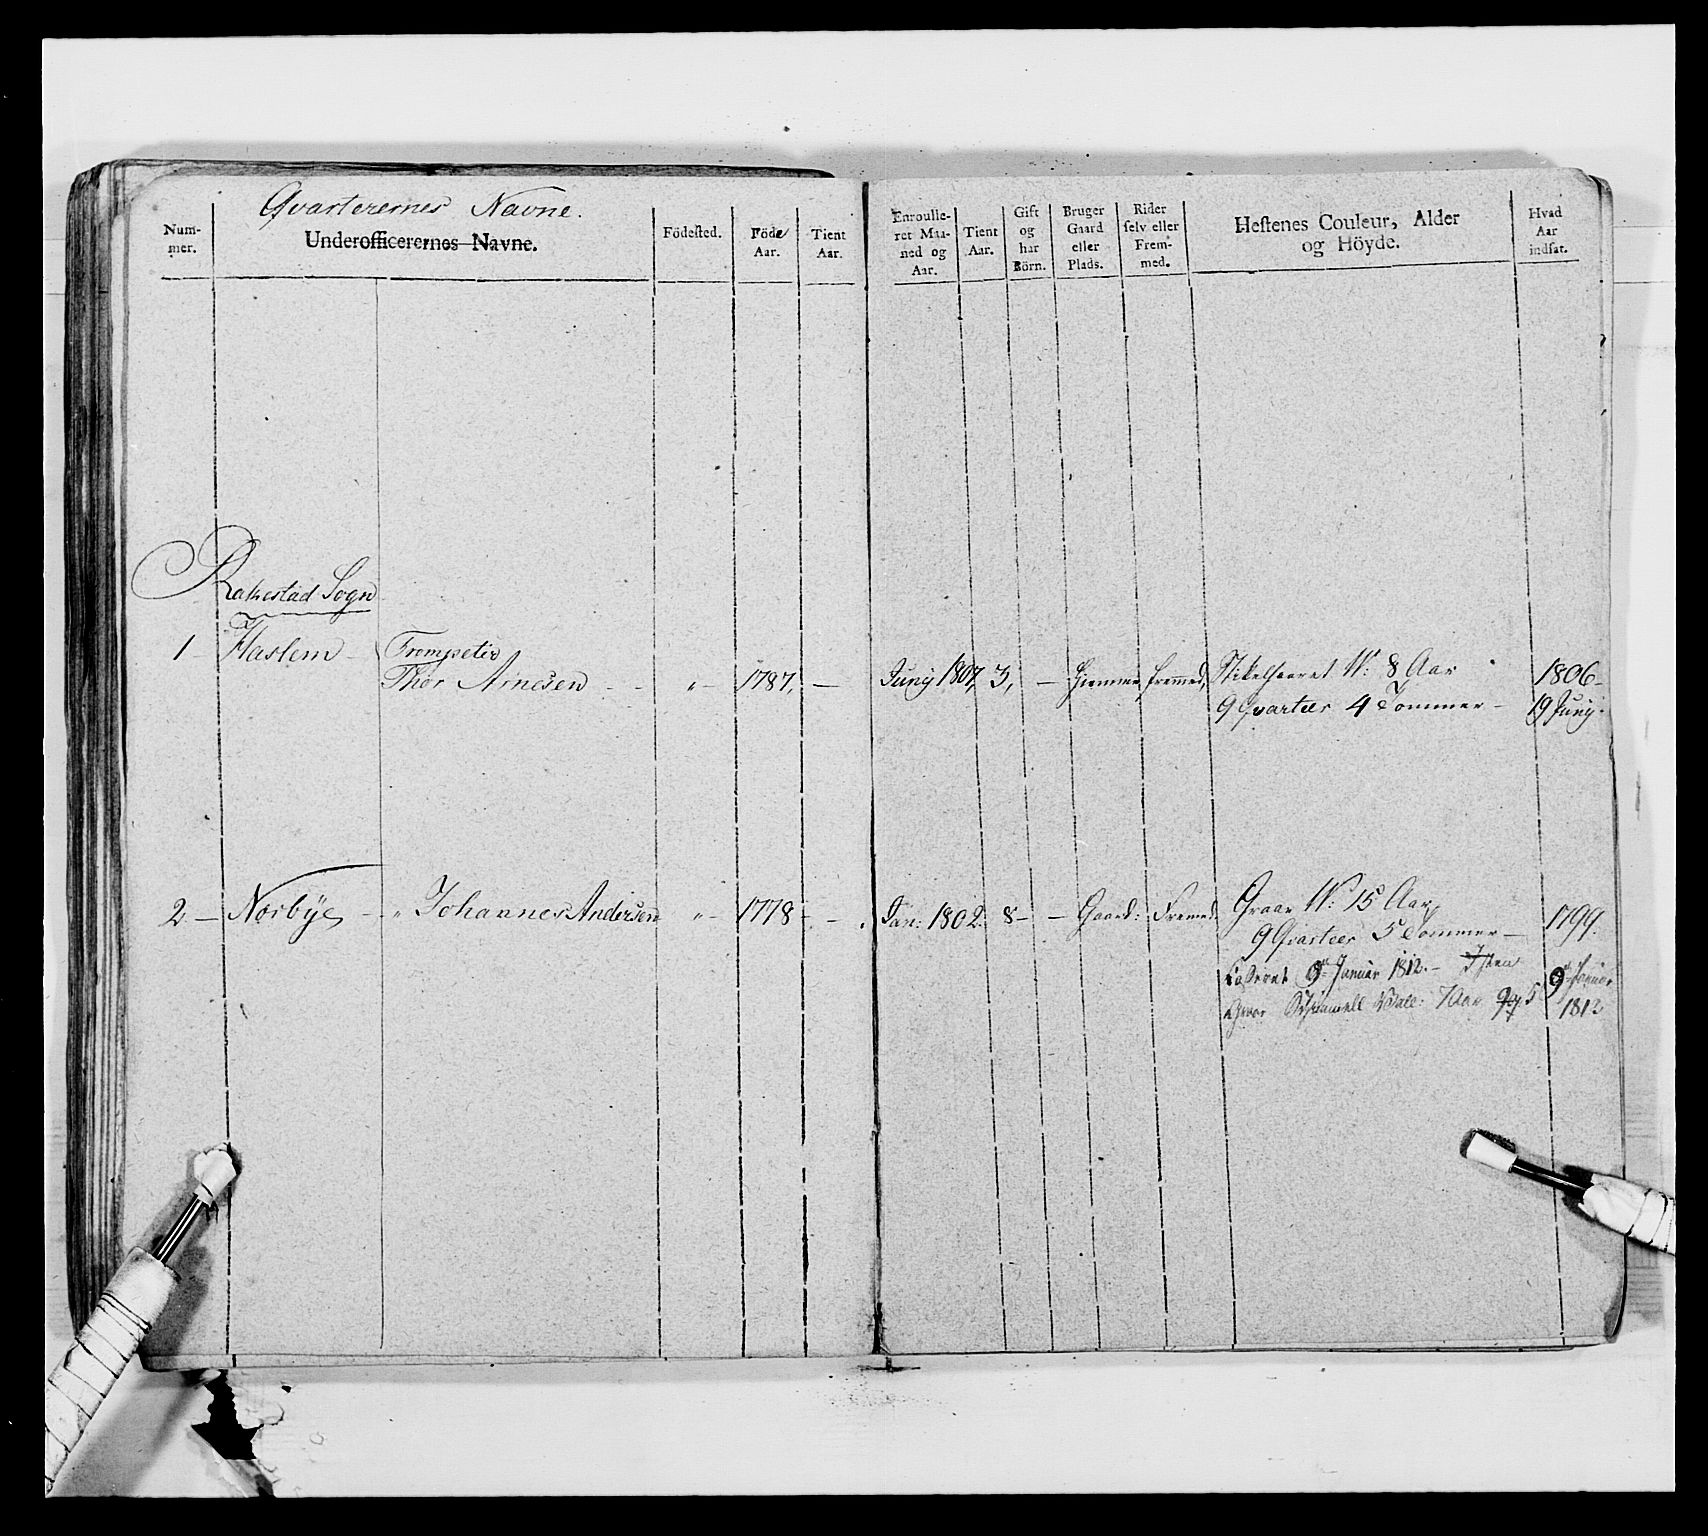 Qvarterernes Navne.
Num-
mer.
Underofficerernes Navne.
Födested.
Föde
Aar.
Tient
Aar.
Enroulle-
ret Maa-
ned og
Aar.
Tient
Aar.
Gift
og
har
Börn.
Bruger
Gaard
eller
Plads.
Rider
selv eller
Frem-
med.
Hestenes Couleur, Alder
og Höyde.
Hvad
Aar
indsat.
Rakestad Sogn
1 - Haslem - Trompeter
Thor Arnesen - - „ - 1787, - Juny 1807, 3, - Hiemme fremed, Stikelhaaret W: 8 Aar 1806 -
9 Qvarteer 4 Tommer - 19 Juny.
2 - Norbye - „ Johannes Andersen „ - 1778 - - Jan: 1802. 8 - - Gaard: Fremed. Graae W: 15 Aar, 1799.
9 Qvarteer 5 Tommer -
Casseret 9de Januar 1812. - 9de Januar
Schimmell 7 Aar 5 1812